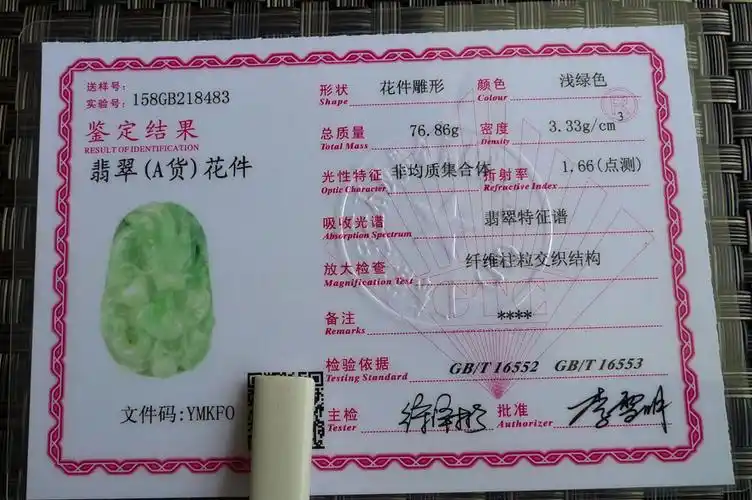 送样号:
实验号: 158GB218483
鉴定结果
RESULT OF IDENTIFICATION
翡翠(A货)花件
文件码:YMKFO
形状 花件雕形 颜色 浅绿色
Shape Colour
总质量 76.86g 密度 3.33g/cm³
Total Mass Density
光性特征 非均质集合体 折射率 1.66(点测)
Optic Character Refractive Index
吸收光谱 翡翠特征谱
Absorption Spectrum
放大检查 纤维柱粒交织结构
Magnification Test
备注 ****
Remarks
检验依据 GB/T 16552 GB/T 16553
Testing Standard
主检 批准
Tester Authorizer